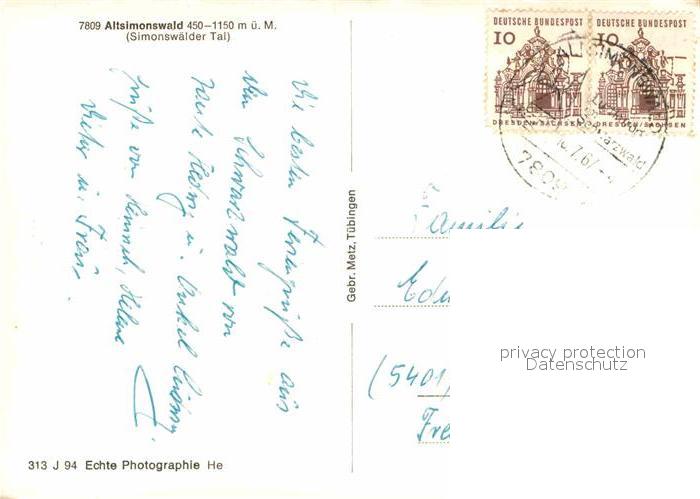 7809 Altsimonswald 450–1150 m ü. M.
(Simonswälder Tal)
DEUTSCHE BUNDESPOST
10
DRESDEN/SACHSEN
DEUTSCHE BUNDESPOST
10
DRESDEN/SACHSEN
ALTSIMONSWALD
Schwarzwald
7.67
7809
Die besten Feriengrüße aus
dem Schwarzwald von
Tante Hedwig u. Onkel Ludwig.
Grüße von Heinrich, Helene
Dieter u. Franz.
Gebr. Metz, Tübingen
Familie
Edu
(5401)
Fre
privacy protection
Datenschutz
313 J 94 Echte Photographie He